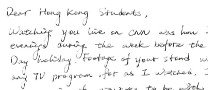 Dear Hong Kong Students,
Watching you live on CNN was how I
evenings during the week before the
Day holiday. Footage of your stand
my TV program, for as I watched, I
to be with